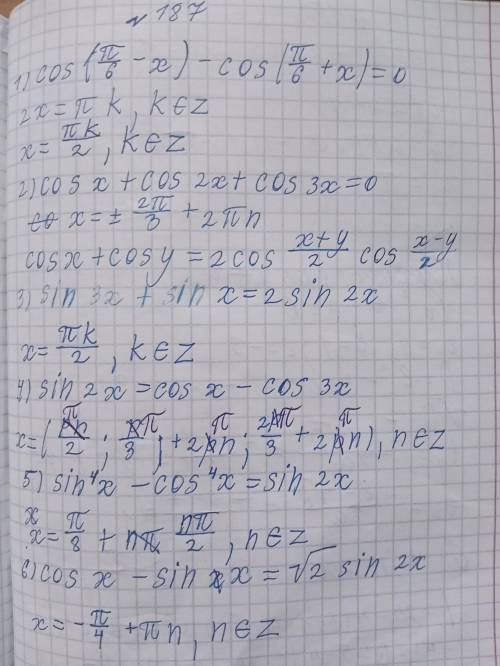 № 187
1) cos(π/6 - x) - cos(π/6 + x) = 0
2x = πk, k∈Z
x = πk/2, k∈Z
2) cos x + cos 2x + cos 3x = 0
x = ± 2π/3 + 2πn
cos x + cos y = 2cos (x+y)/2 cos (x-y)/2
3) sin 3x + sin x = 2 sin 2x
x = πk/2, k∈Z
4) sin 2x = cos x - cos 3x
x = (πn/2; π/3; + 2πn; 2π/3 + 2πn), n∈Z
5) sin⁴x - cos⁴x = sin 2x
x
x = π/8 + nπ/2, n∈Z
6) cos x - sin x = √2 sin 2x
x = -π/4 + πn, n∈Z